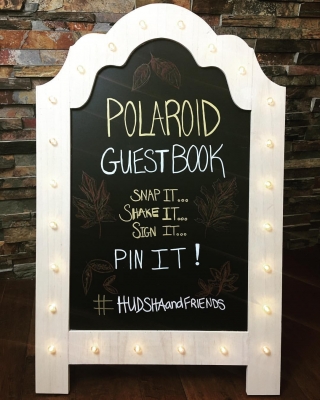 POLAROID
GUESTBOOK
SNAP IT...
SHAKE IT...
SIGN IT...
PIN IT!
# HUDSHAandFRIENDS